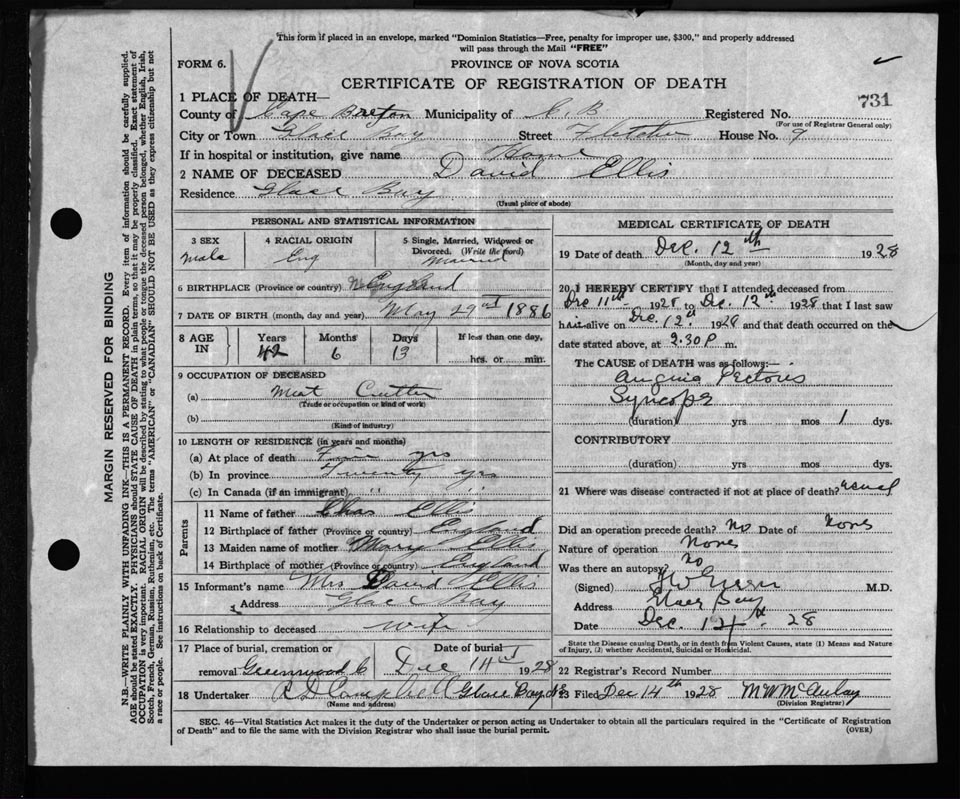 This form if placed in an envelope, marked "Dominion Statistics—Free, penalty for improper use, $300," and properly addressed
will pass through the Mail "FREE"
FORM 6.
PROVINCE OF NOVA SCOTIA
CERTIFICATE OF REGISTRATION OF DEATH
731
1 PLACE OF DEATH—
County of Cape Breton Municipality of C. B Registered No.
(For use of Registrar General only)
City or Town Glace Bay Street Fletcher House No. 9
If in hospital or institution, give name Home
2 NAME OF DECEASED David Ellis
Residence Glace Bay
(Usual place of abode)
PERSONAL AND STATISTICAL INFORMATION
3 SEX male
4 RACIAL ORIGIN Eng
5 Single, Married, Widowed or Divorced. (Write the word) Married
6 BIRTHPLACE (Province or country) England
7 DATE OF BIRTH (month, day and year) May 29 1886
8 AGE IN Years 42 Months 6 Days 13 If less than one day, hrs. or min.
9 OCCUPATION OF DECEASED
(a) Meat Cutter
(Trade or occupation or kind of work)
(b)
(Kind of industry)
10 LENGTH OF RESIDENCE (in years and months)
(a) At place of death yrs
(b) In province Twenty yrs
(c) In Canada (if an immigrant) " "
Parents
11 Name of father Chas Ellis
12 Birthplace of father (Province or country) England
13 Maiden name of mother Mary Ellis
14 Birthplace of mother (Province or country) England
15 Informant's name Mrs David Ellis
Address Glace Bay
16 Relationship to deceased wife
17 Place of burial, cremation or removal Greenwood C Date of burial Dec 14 1928
18 Undertaker Glace Bay
(Name and address)
MEDICAL CERTIFICATE OF DEATH
19 Date of death Dec. 12th 1928
(Month, day and year)
20 I HEREBY CERTIFY that I attended deceased from
Dec 11th 1928 to Dec. 12th 1928 that I last saw
him alive on Dec. 12th 1928 and that death occurred on the
date stated above, at 2.30 P m.
The CAUSE of DEATH was as follows:—
Angina Pectoris
Syncope
(duration) yrs mos 1 dys.
CONTRIBUTORY
(duration) yrs mos dys.
21 Where was disease contracted if not at place of death? usual
Did an operation precede death? No Date of None
Nature of operation None
Was there an autopsy? no
(Signed) M.D.
Address Glace Bay
Date Dec. 12th 28
State the Disease causing Death, or in death from Violent Causes, state (1) Means and Nature
of Injury, (2) whether Accidental, Suicidal or Homicidal.
22 Registrar's Record Number
23 Filed Dec 14th 1928 M W McAulay
(Division Registrar)
SEC. 46—Vital Statistics Act makes it the duty of the Undertaker or person acting as Undertaker to obtain all the particulars required in the "Certificate of Registration
of Death" and to file the same with the Division Registrar who shall issue the burial permit.
(OVER)
MARGIN RESERVED FOR BINDING
N.B.—WRITE PLAINLY WITH UNFADING INK—THIS IS A PERMANENT RECORD. Every item of information should be carefully supplied.
AGE should be stated EXACTLY. PHYSICIANS should STATE CAUSE OF DEATH in plain terms, so that it may be properly classified. Exact statement of
OCCUPATION is very important. RACIAL ORIGIN will be described by stating to what people or tongue the deceased person belonged, whether English, Irish,
Scotch, French, German, Russian, Ruthenian, etc. The terms "AMERICAN" or "CANADIAN" SHOULD NOT BE USED as they express citizenship but not
a race or people. See instructions on back of Certificate.